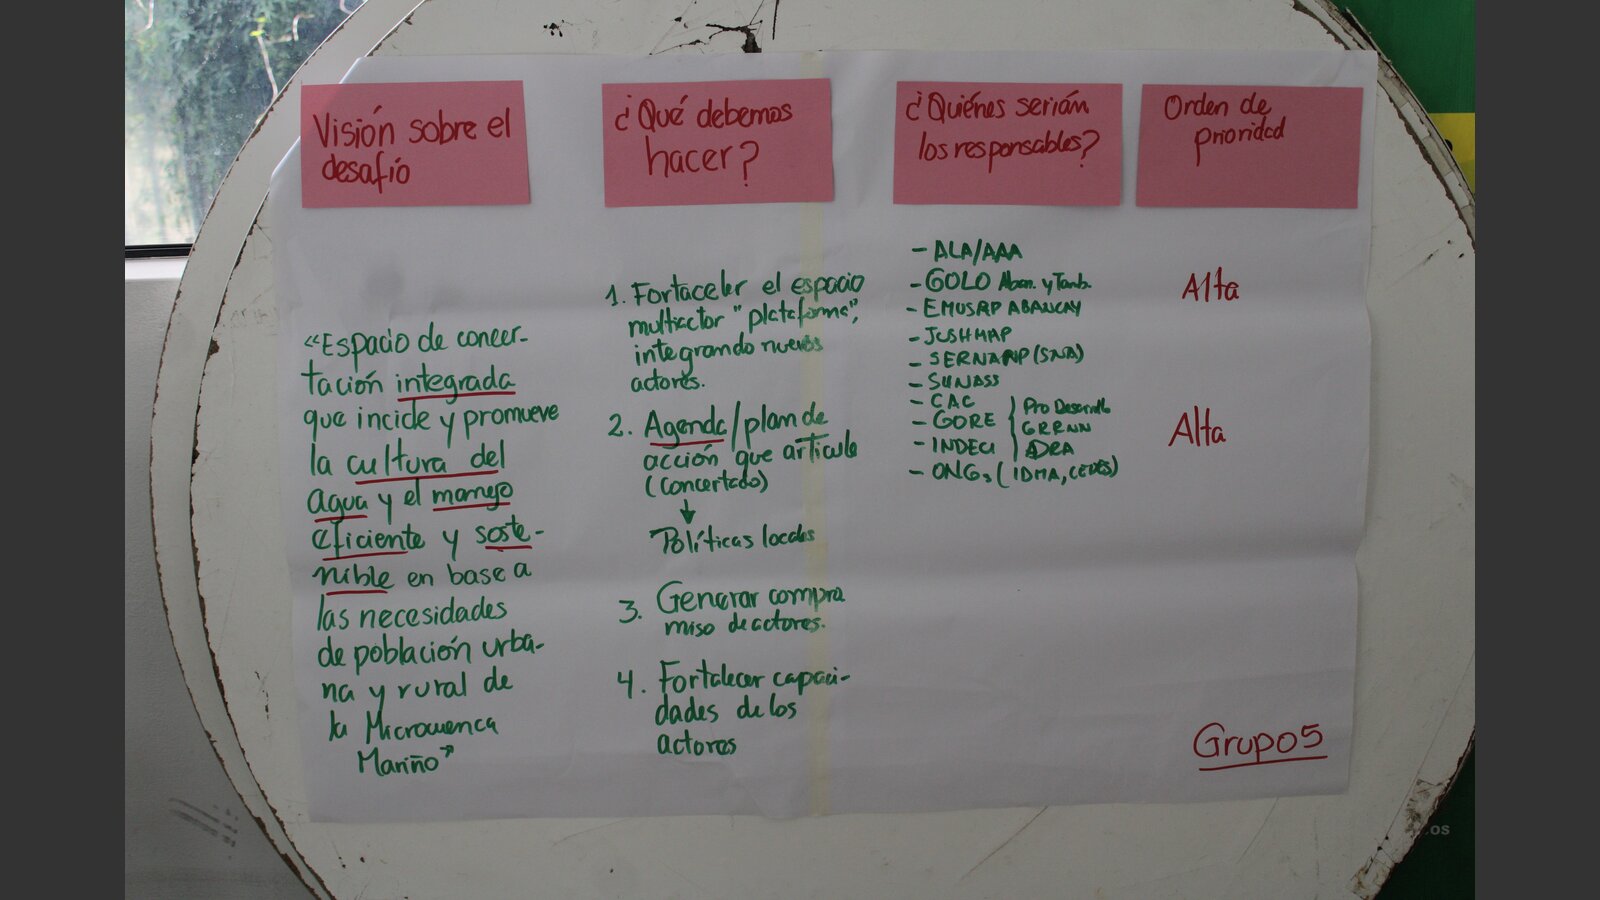 Visión sobre el
desafío
«Espacio de concer-
tación integrada
que incide y promueve
la cultura del
agua y el manejo
eficiente y soste-
nible en base a
las necesidades
de población urba-
na y rural de
la Microcuenca
Mariño"
¿Qué debemos
hacer?
1. Fortaceler el espacio
multiactor "plataforma",
integrando nuevos
actores.
2. Agenda/plan de
acción que articule
(concertado)
↓
Políticas locales
3. Generar compro
miso de actores.
4. Fortalecer capaci-
dades de los
actores
¿Quiénes serián
los responsables?
- ALA/AAA
- GOLO Aban. y Tamb.
- EMUSAP ABANCAY
- JUSHMAP
- SERNANP (SNA)
- SUNASS
- CAC
- GORE } Pro Desarrollo
GRRNN
- INDECI DRA
- ONGs (IDMA, CEDES)
Orden de
prioridad
Alta
Alta
Grupo 5